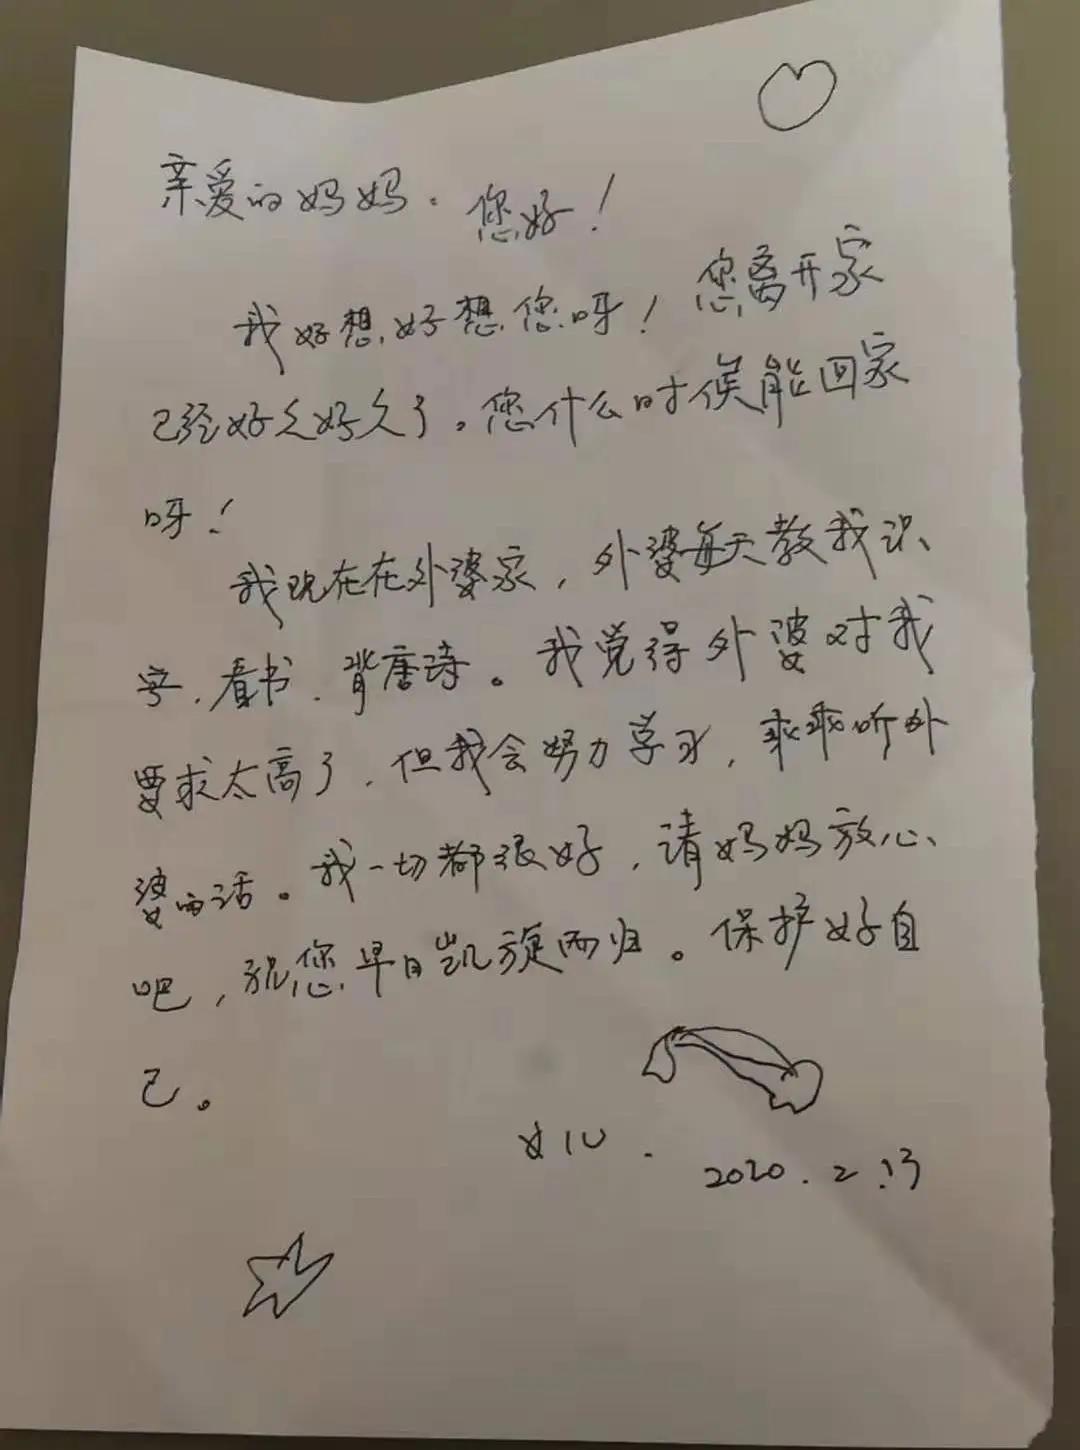 亲爱的妈妈. 您好！
我好想,好想,您呀！您离开家
已经好久好久了。您什么时候能回家
呀！
我现在在外婆家，外婆每天教我识
字.看书.背唐诗。我觉得外婆对我
要求太高了.但我会努力学习，乖乖听外
婆的话。我一切都很好，请妈妈放心
吧，祝您早日凯旋而归。保护好自
己。
女儿.
2020.2.13